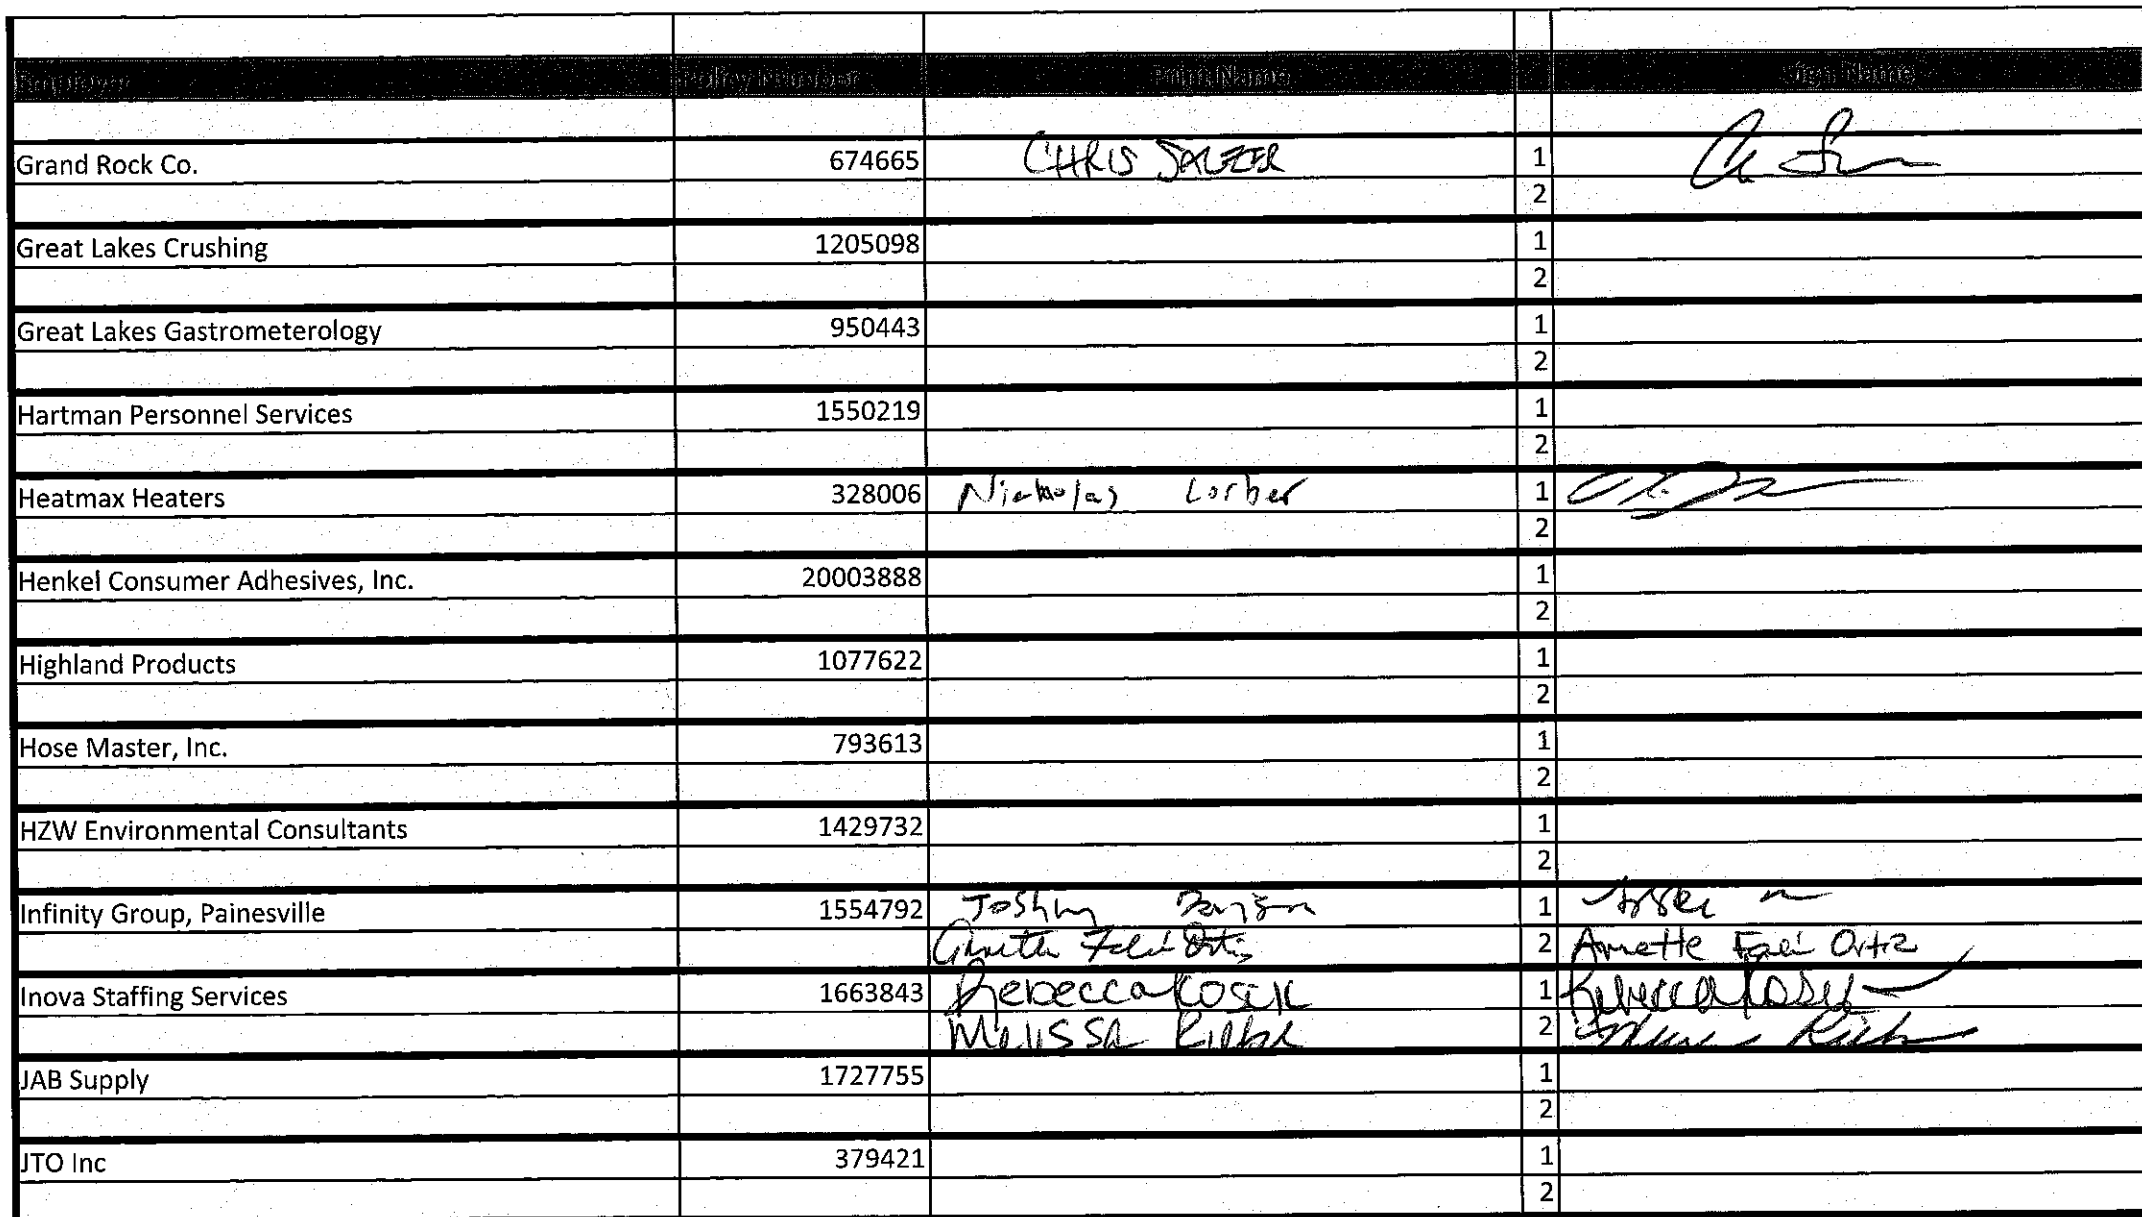 Employer Policy Number Print Name Sign Name
Grand Rock Co. 674665 CHRIS SALZER 1
2
Great Lakes Crushing 1205098 1
2
Great Lakes Gastrometerology 950443 1
2
Hartman Personnel Services 1550219 1
2
Heatmax Heaters 328006 Nickolas Lorber 1
2
Henkel Consumer Adhesives, Inc. 20003888 1
2
Highland Products 1077622 1
2
Hose Master, Inc. 793613 1
2
HZW Environmental Consultants 1429732 1
2
Infinity Group, Painesville 1554792 Joshua 1
2 Annette Ortiz
Inova Staffing Services 1663843 Rebecca Kosik 1 Rebecca Kosik
Melissa 2
JAB Supply 1727755 1
2
JTO Inc 379421 1
2